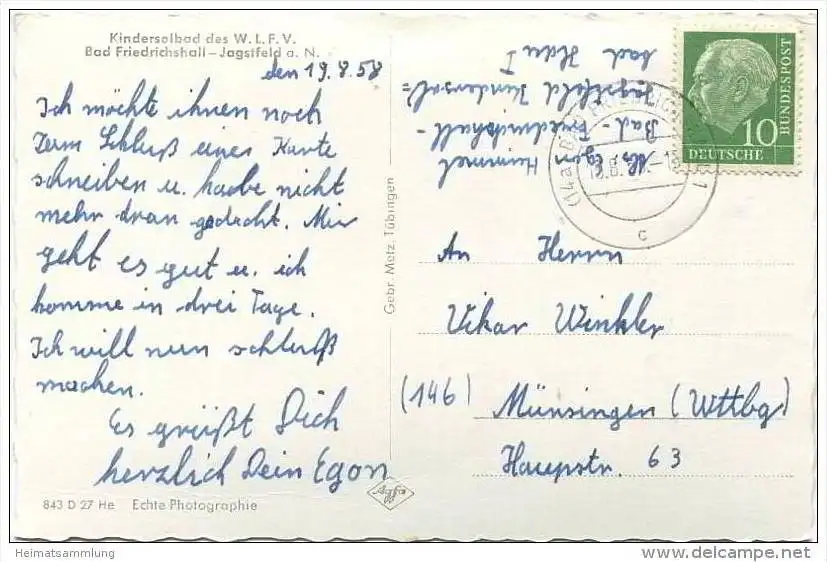 Kindersolbad des W. L. F. V.
Bad Friedrichshall – Jagstfeld a. N.
den 19.8.58
Ich möchte ihnen noch
zum Schluß eines Karte
schreiben u. haabe nicht
mehr dran gedacht. Mir
geht es gut u. ich
komme in drei Tage.
Ich will nun schluß
machen.
Es grüßt Dich
herzlich Dein Egon
843 D 27 He Echte Photographie
Gebr. Metz, Tübingen
Agfa
Abs. Egon Hummel
Bad - Friedrichshall -
Jagstfeld Kindersol=
bad I
DEUTSCHE
BUNDESPOST
10
(14a) BAD FRIEDRICHSHALL 1
c
An Herrn
Vikar Winkler
(146) Münsingen (Wttbg)
Haupstr. 63
Heimatsammlung
www.delcampe.net